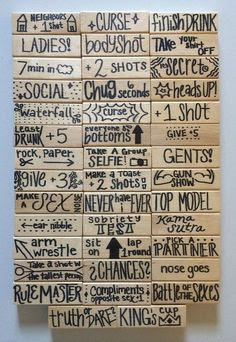 NEIGHBORS
+1 Shot
CURSE
finish DRINK
LADIES!
bodyshot
Take your
shirt
OFF
7 min in
+2 SHOTS
secret
SOCIAL
Chug 9 seconds
HEADS UP!
waterfall
curse
+1 Shot
Least
DRUNK +5
everyone
bottoms
GIVE +5
rock, PaPer,
Take A Group
SELFIE!
GENTS!
GIVE +3
Make a Toast
+2 Shots
GUN
SHOW
MAKE
A OPEX NOISE
NEVER HAVE EVER
TOP MODEL
ear nibble
sobriety
TEST
Kama
Sutra
arm
wrestle
sit
on
lap
1
round
PICK A
PARTNER
Take a shot w
the tallest person
¿CHANCES?
nose goes
RULE MASTER
Compliments
opposite sex +1
Battle OF THE Sexes
truth OR DARE?
KING'S CUP